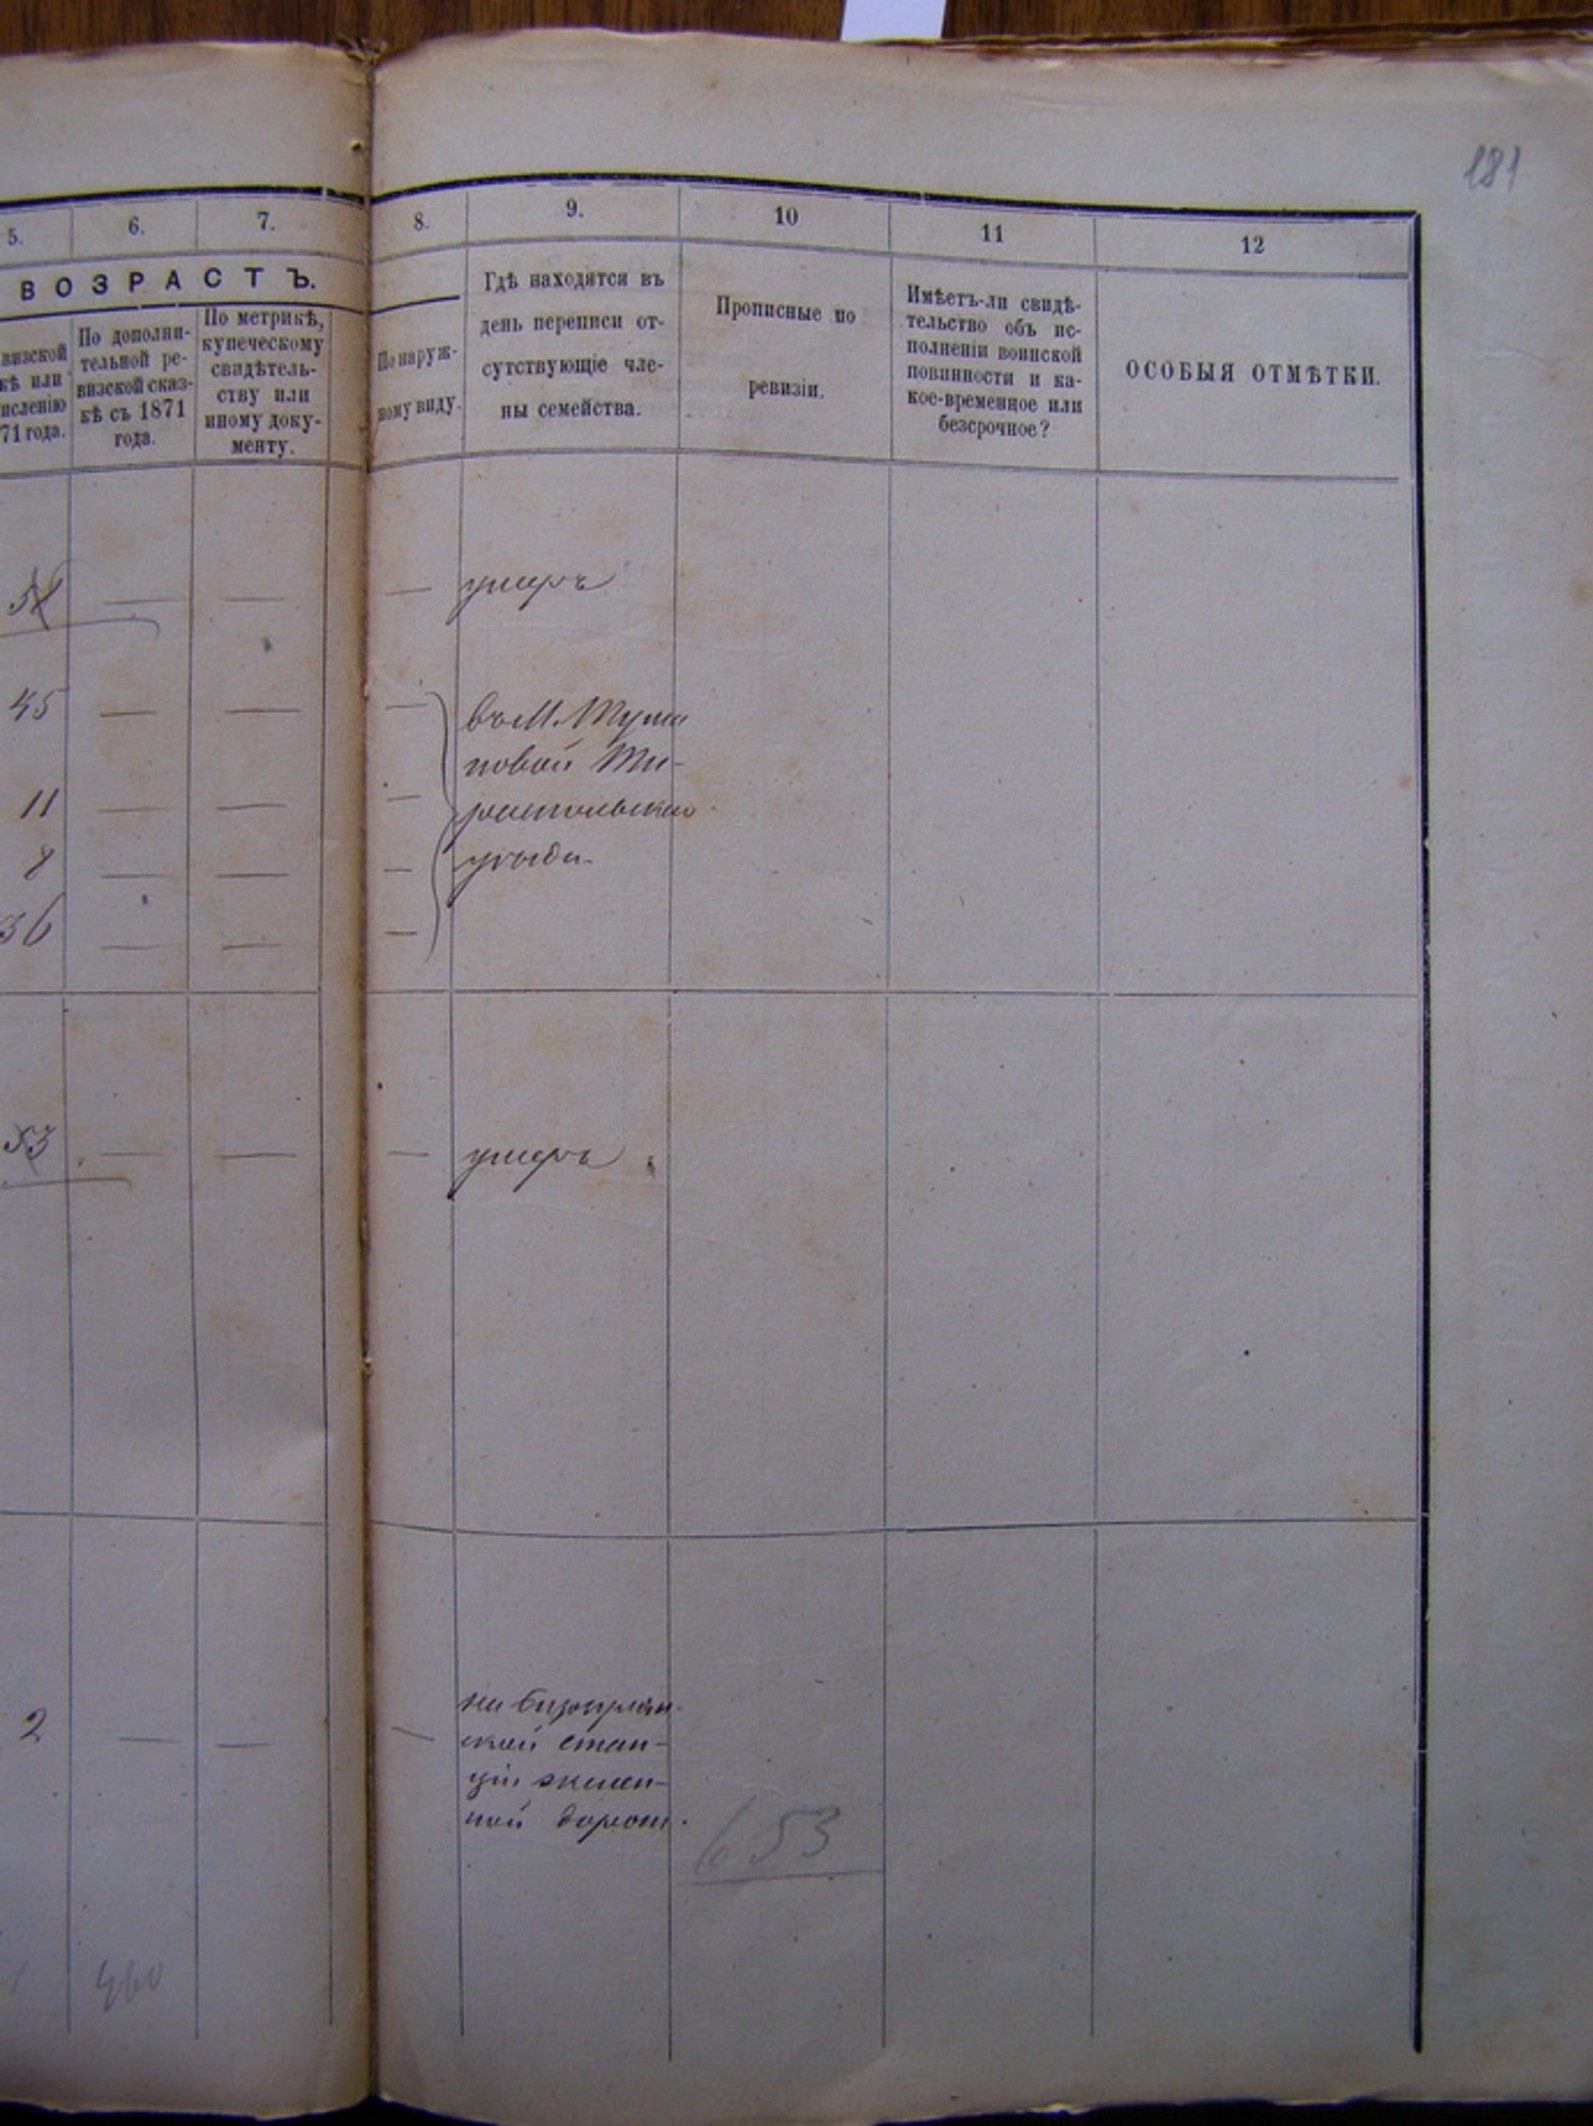 181
5. 6. 7. 8. 9. 10 11 12
ВОЗРАСТЪ.
визской
кѣ или
исленію
71 года.
По дополни-
тельной ре-
визской сказ-
кѣ съ 1871
года.
По метрикѣ,
купеческому
свидѣтель-
ству или
иному доку-
менту.
По наруж-
ному виду.
Гдѣ находятся въ
день переписи от-
сутствующіе чле-
ны семейства.
Прописные по
ревизіи.
Имѣетъ-ли свидѣ-
тельство объ ис-
полненіи воинской
повинности и ка-
кое-временное или
безсрочное?
ОСОБЫЯ ОТМѢТКИ.
— — — умеръ
45 — — —
въ М.
новой Ти-
распольскаго
уѣзда
11 — — —
8 — — —
36 — — —
53 — — — умеръ
2 — — —
на
ской стан-
ціи желѣз-
ной дороги.
653
460